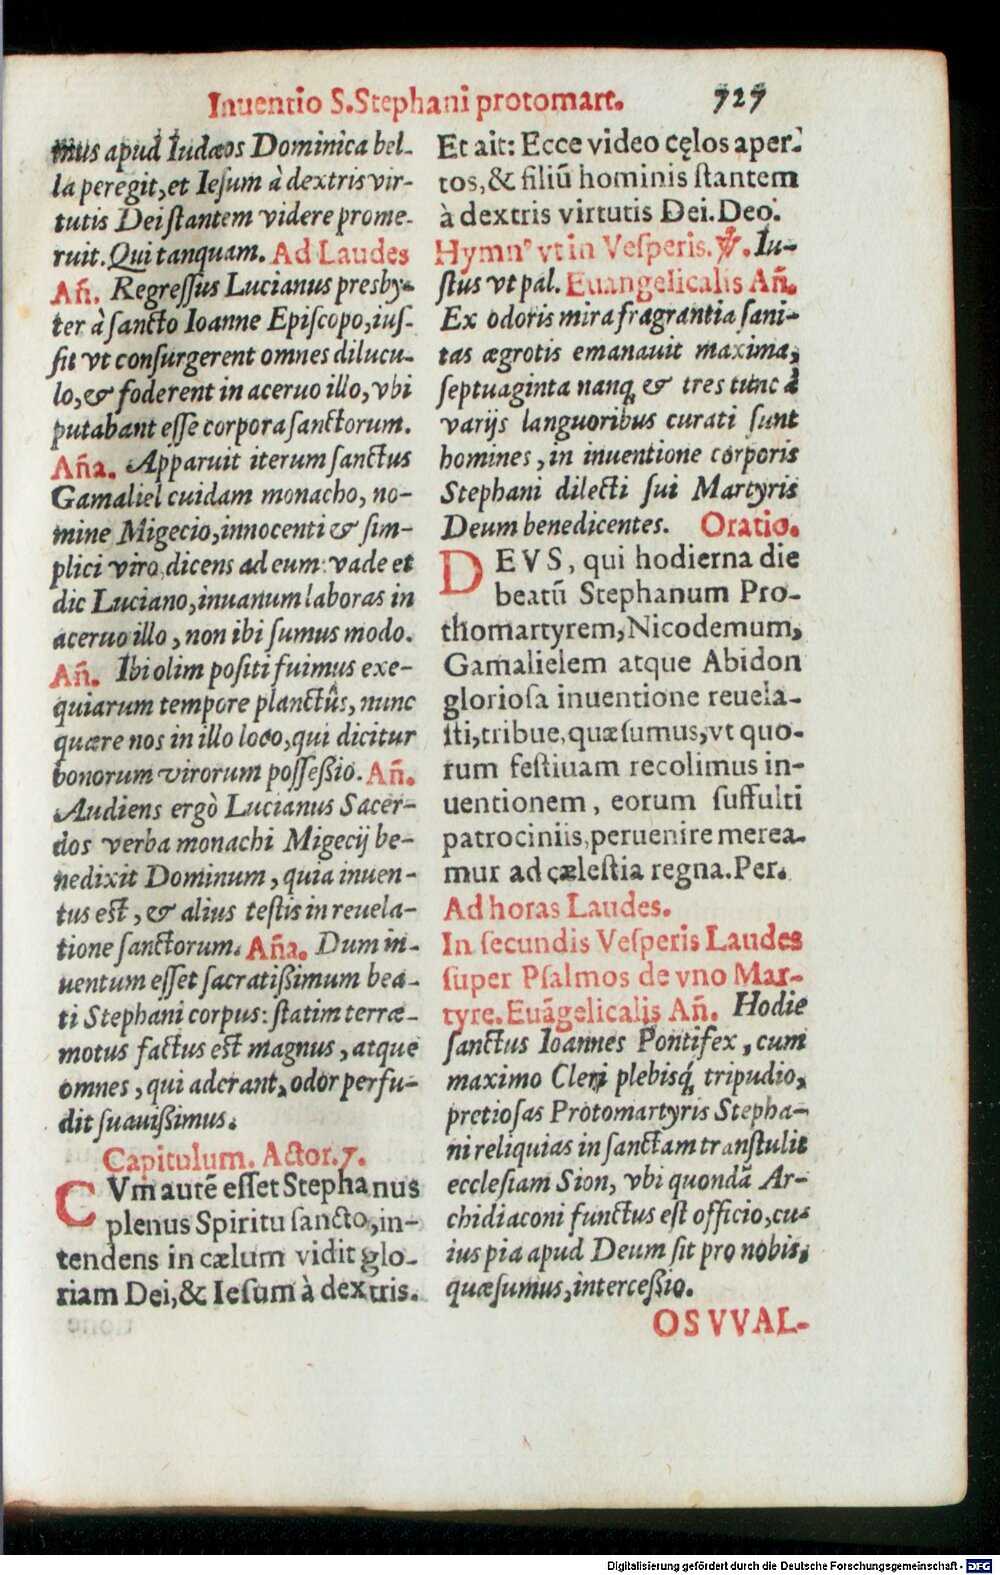 Inuentio S. Stephani protomart. 727
mus apud Iudæos Dominica bel-
la peregit, et Iesum à dextris vir-
tutis Dei stantem videre prome-
ruit. Qui tanquam. Ad Laudes
Añ. Regressus Lucianus presby-
ter à sancto Ioanne Episcopo, ius-
sit vt consurgerent omnes dilucu-
lo, & foderent in aceruo illo, vbi
putabant esse corpora sanctorum.
Aña. Apparuit iterum sanctus
Gamaliel cuidam monacho, no-
mine Migecio, innocenti & sim-
plici viro, dicens ad eum: vade et
dic Luciano, inuanum laboras in
aceruo illo, non ibi sumus modo.
Añ. Ibi olim positi fuimus exe-
quiarum tempore planctûs, nunc
quære nos in illo loco, qui dicitur
bonorum virorum possessio. Añ.
Audiens ergò Lucianus Sacer-
dos verba monachi Migecij be-
nedixit Dominum, quia inuen-
tus est, & alius testis in reuela-
tione sanctorum. Aña. Dum in-
uentum esset sacratissimum bea-
ti Stephani corpus: statim terræ-
motus factus est magnus, atque
omnes, qui aderant, odor perfu-
dit suauissimus.
Capitulum. Actor. 7.
CVm autē esset Stephanus
plenus Spiritu sancto, in-
tendens in cælum vidit glo-
riam Dei, & Iesum à dextris.
Et ait: Ecce video cęlos aper-
tos, & filiū hominis stantem
à dextris virtutis Dei. Deo.
Hymnꝰ vt in Vesperis. ℣. Iu-
stus vt pal. Euangelicalis Añ.
Ex odoris mira fragrantia sani-
tas ægrotis emanauit maxima,
septuaginta nanq̨ & tres tunc à
varijs languoribus curati sunt
homines, in inuentione corporis
Stephani dilecti sui Martyris
Deum benedicentes. Oratio.
DEVS, qui hodierna die
beatū Stephanum Pro-
thomartyrem, Nicodemum,
Gamalielem atque Abidon
gloriosa inuentione reuela-
sti, tribue, quæsumus, vt quo-
rum festiuam recolimus in-
uentionem, eorum suffulti
patrociniis, peruenire merea-
mur ad cælestia regna. Per.
Ad horas Laudes.
In secundis Vesperis Laudes
super Psalmos de vno Mar-
tyre. Euãgelicalis Añ. Hodie
sanctus Ioannes Pontifex, cum
maximo Cleri plebisq̨́ tripudio,
pretiosas Protomartyris Stepha-
ni reliquias in sanctam transtulit
ecclesiam Sion, vbi quondā Ar-
chidiaconi functus est officio, cu-
ius pia apud Deum sit pro nobis,
quæsumus, intercessio.
OSVVAL-
Digitalisierung gefördert durch die Deutsche Forschungsgemeinschaft - DFG